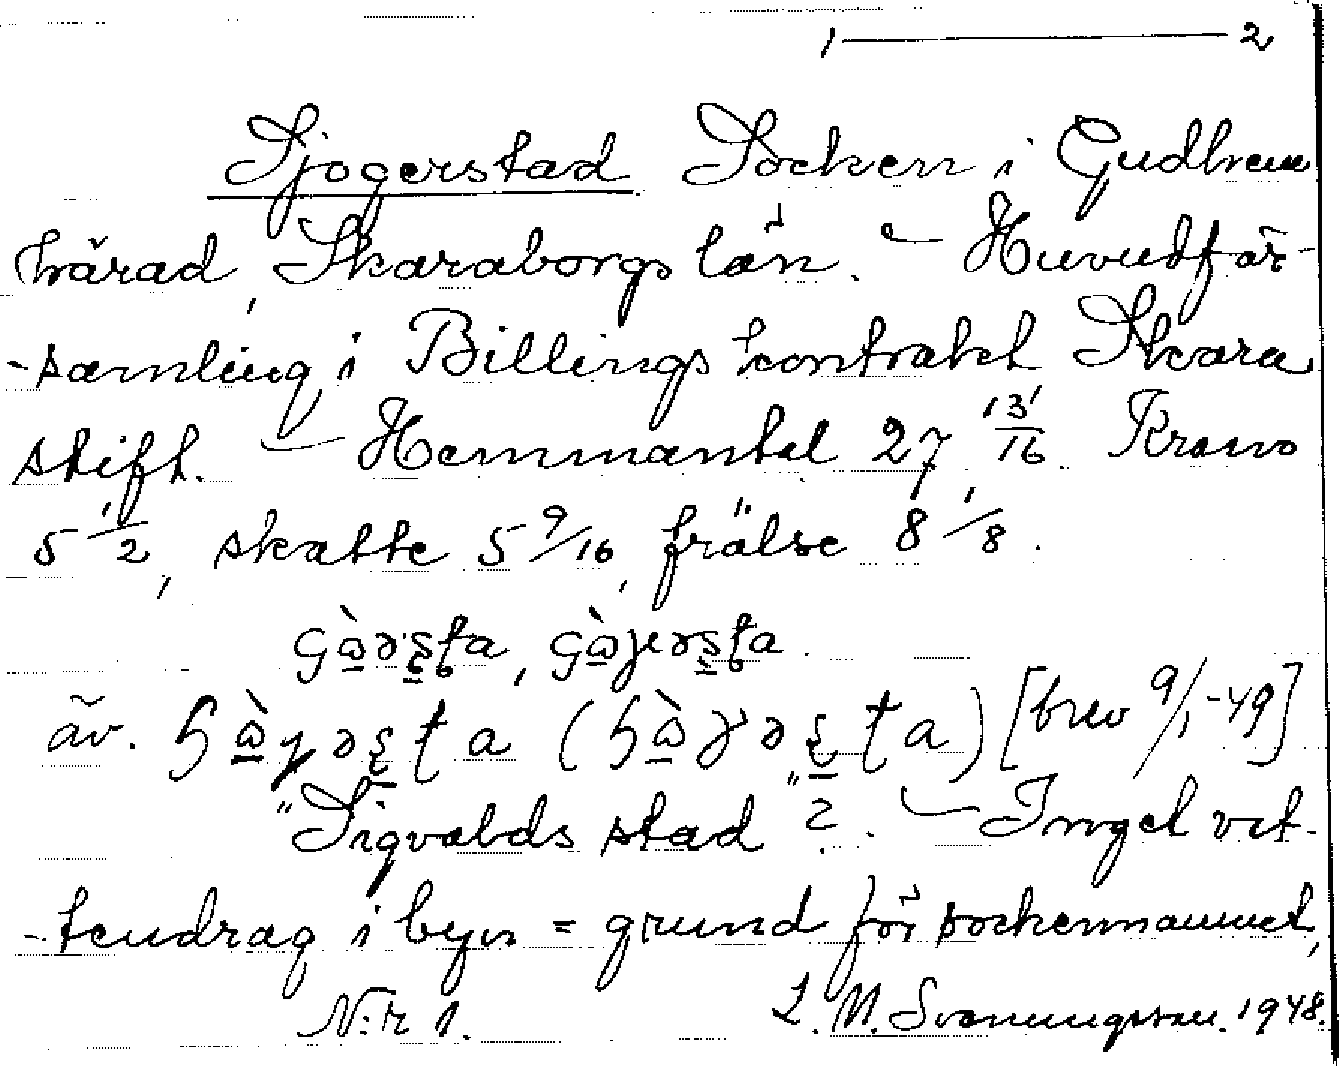 1 ——— 2
Sjogerstad Socken i Gudhem
härad, Skaraborgs län. — Huvudför-
-samling i Billings kontrakt Skara
stift. — Hemmantal 27 13/16 Krono
5 1/2, skatte 5 9/16, frälse 8 1/8.
av. [brev 9/1-49]
"Sigvalds stad"? . — Inget vat-
-tendrag i byn = grund för sockennamnet,
N:r 1. L. M. Svanungsson. 1948.